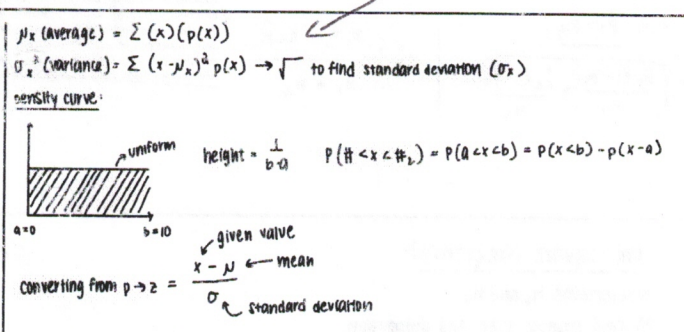 μx (average) = Σ (x)(p(x))
σx² (variance) = Σ (x-μx)² p(x) → √ to find standard deviation (σx)
Density curve:
uniform
height = 1/b-a P(# < x < #2) = P(a<x<b) = P(x<b) - p(x-a)
a=0 b=10
given value
converting from p→z = x - μ / σ ← mean
standard deviation